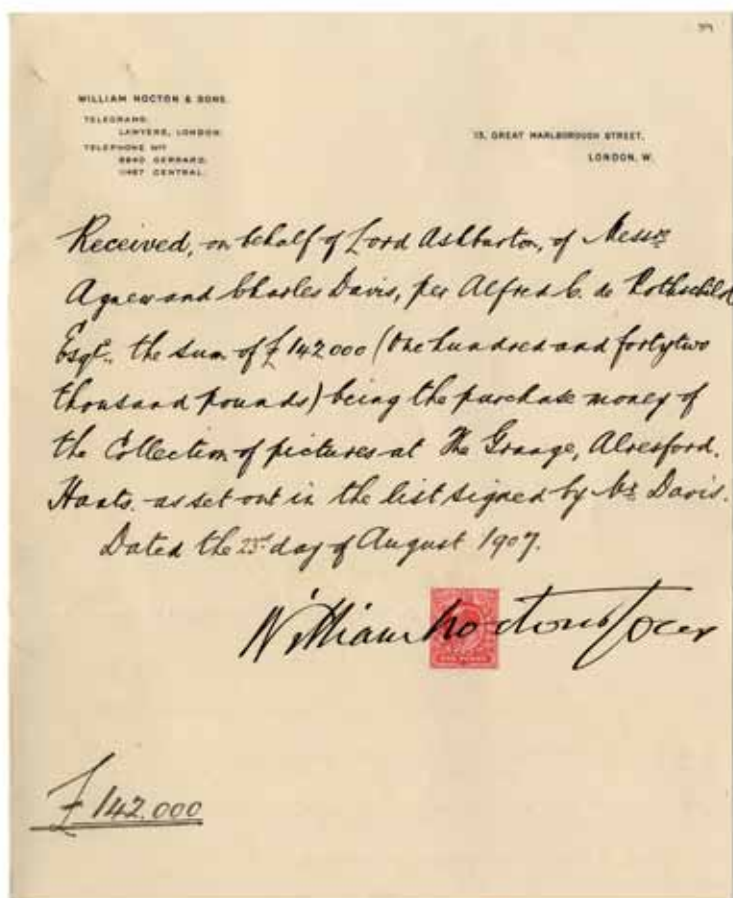 WILLIAM NOCTON & SONS.
TELEGRAMS:
LAWYERS, LONDON.
TELEPHONE Nos
GERRARD.
CENTRAL.
GREAT MARLBOROUGH STREET,
LONDON, W.
Received, on behalf of Lord Ashburton, of Messrs
Agnew and Charles Davis, per Alfred C. de Rothschild
Esqre., the sum of £142000 (One hundred and fortytwo
thousand pounds) being the purchase money of
the Collection of pictures at The Grange, Alresford.
Hants. as set out in the list signed by Mr Davis.
Dated the 23rd day of August 1907.
William Nocton & Sons
ONE PENNY
£142.000